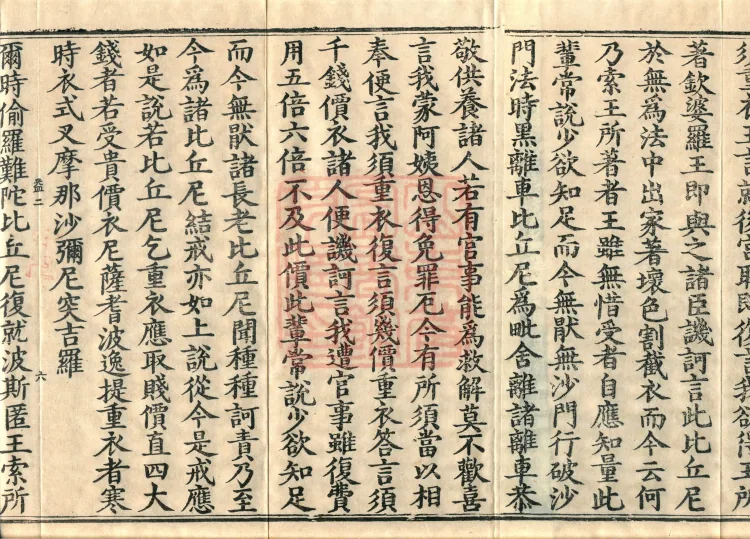 言就後宮取即復語我欲得王所
著欽婆羅王即與之諸臣譏訶言此比丘尼
於無爲法中出家著壞色割截衣而今云何
乃索王所著者王雖無惜受者自應知量此
輩常說少欲知足而今無猒無沙門行破沙
門法時黑離車比丘尼爲毗舍離諸離車恭
敬供養諸人若有官事能爲救解莫不歡喜
言我蒙阿姨恩得免罪厄今有所須當以相
奉便言我須重衣復言須幾價重衣答言須
千錢價衣諸人便譏訶言我遭官事雖復費
用五倍六倍不及此價此輩常說少欲知足
而今無猒諸長老比丘尼聞種種訶責乃至
今爲諸比丘尼結戒亦如上說從今是戒應
如是說若比丘尼乞重衣應取賤價直四大
錢者若受貴價衣尼薩耆波逸提重衣者寒
時衣式叉摩那沙彌尼突吉羅
益二 六
爾時偷羅難陀比丘尼復就波斯匿王索所